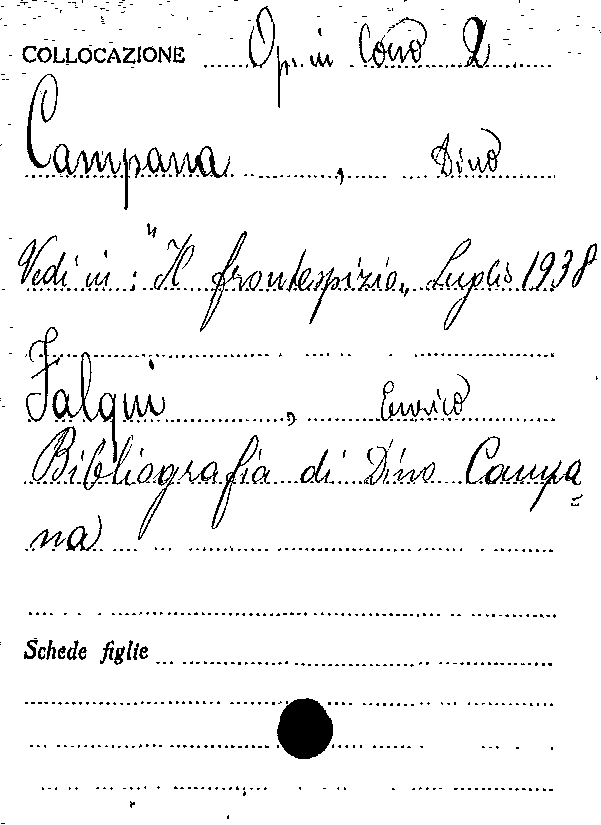 COLLOCAZIONE Op. in Cons 2
Campana, Dino
Vedi in: "Il frontespizio„ Luglio 1938
Falqui, Enrico
Bibliografia di Dino Campa=
na
Schede figlie